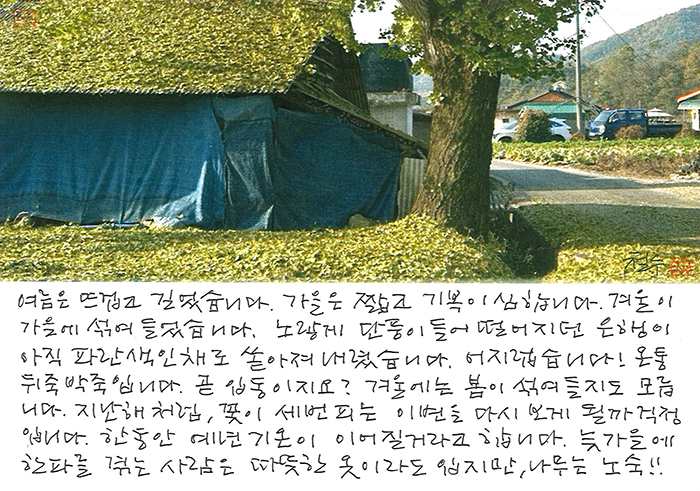 여름은 뜨겁고 길었습니다. 가을은 짧고 기복이 심합니다. 겨울이
가을에 섞여 들었습니다. 노랗게 단풍이 들어 떨어지던 은행이
아직 파란색인 채로 쏟아져 내렸습니다. 어지럽습니다! 온통
뒤죽박죽입니다. 곧 입동이지요? 겨울에는 봄이 섞여들지도 모릅
니다. 지난해처럼, 꽃이 세번 피는 이변을 다시 보게 될까 걱정
입니다. 한동안 예년기온이 이어질거라고 합니다. 늦가을에
한파를 겪는 사람은 따뜻한 옷이라도 입지만, 나무는 노숙!!